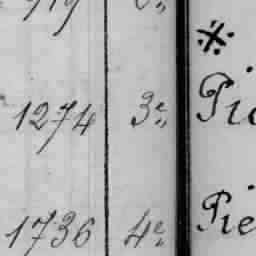 ※
1274 3e Pi
1736 4e Pie